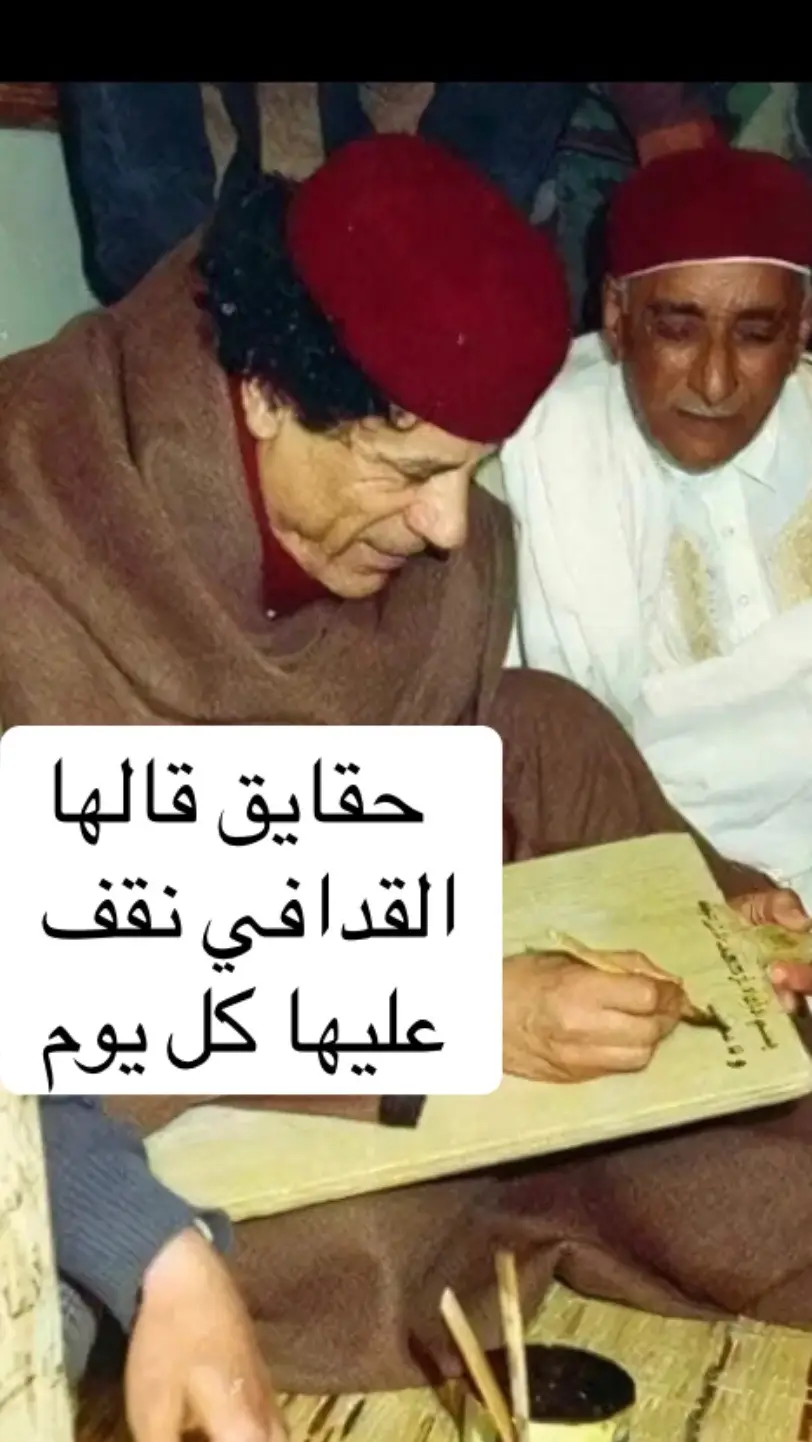 حقايق قالها
القدافي نقف
عليها كل يوم